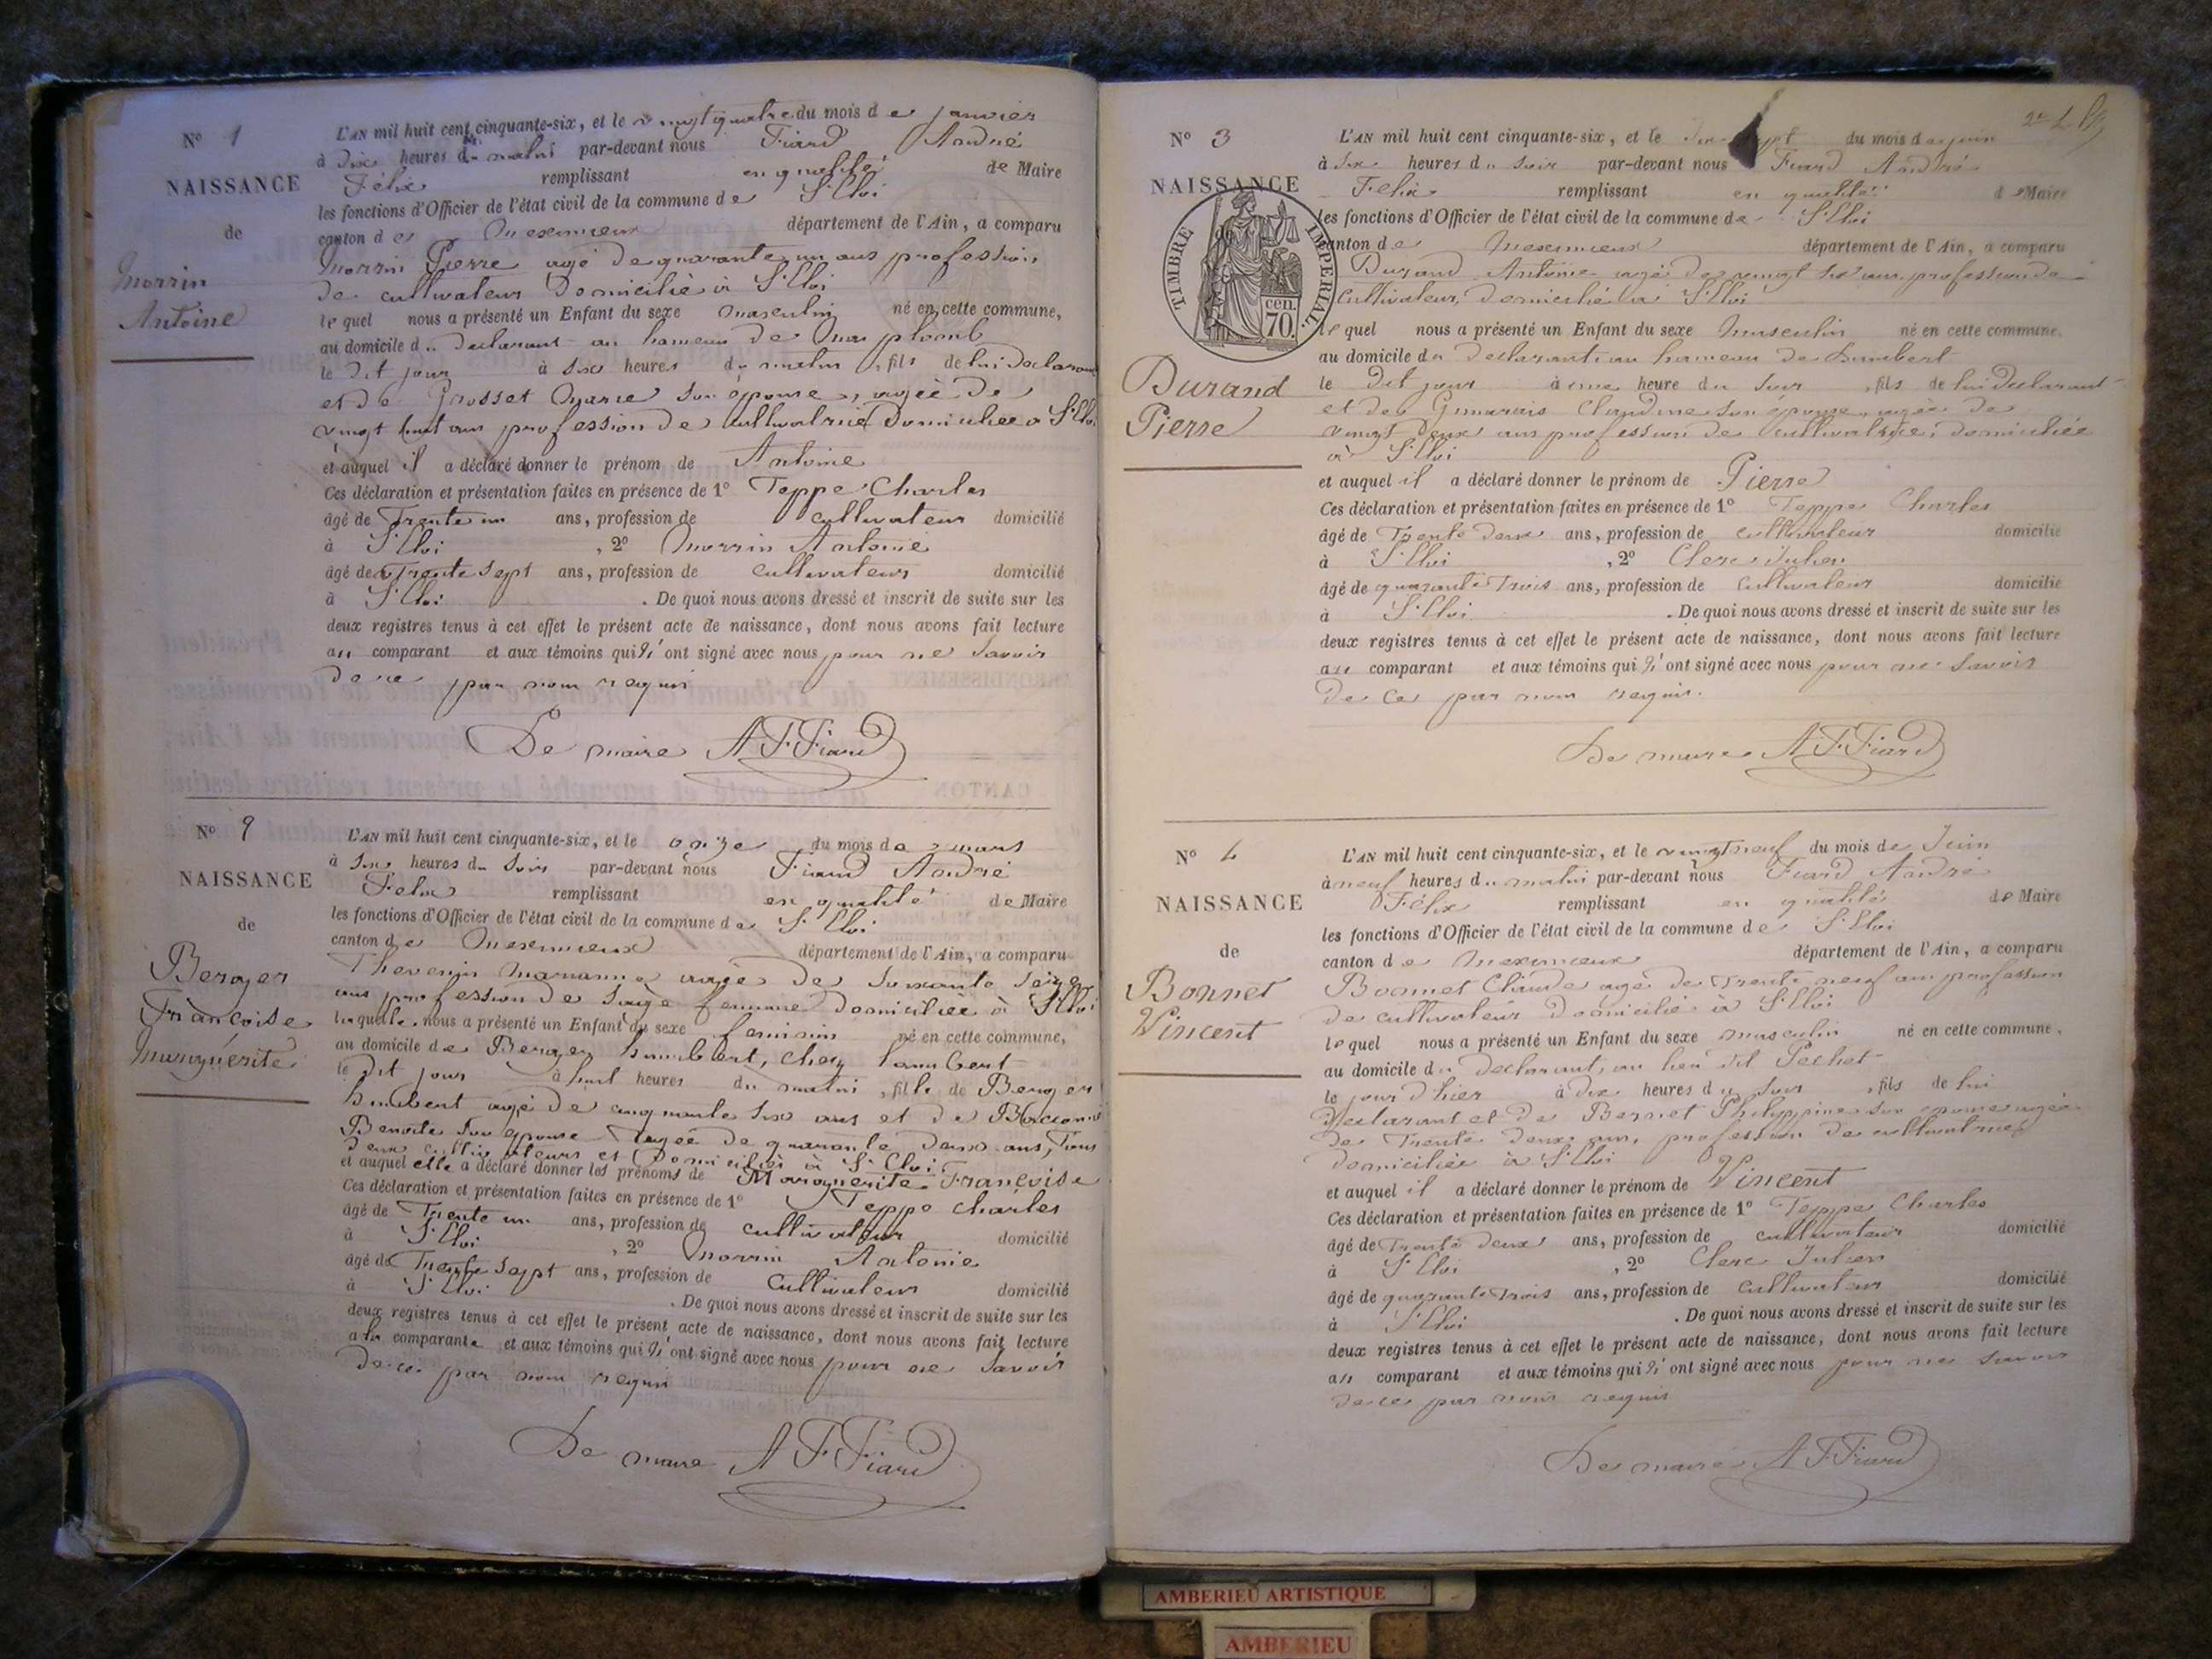 N° 1
NAISSANCE
de
Morrin
Antoine
L'AN mil huit cent cinquante-six, et le vingt quatre du mois de janvier
à dix heures du matin par-devant nous Fiard André
Félix remplissant en qualité de Maire
les fonctions d'Officier de l'état civil de la commune de St Eloi
canton de Meximieux département de l'Ain, a comparu
Morrin Pierre agé de quarante un ans profession
de cultivateur domicilié à St Eloi
lequel nous a présenté un Enfant du sexe masculin né en cette commune,
au domicile du declarant au hameau de
le dit jour à six heures du matin, fils de lui declarant
et de Grosset Marie son épouse, agée de
vingt huit ans profession de cultivatrice domiciliée à St Eloi
et auquel il a déclaré donner le prénom de Antoine
Ces déclaration et présentation faites en présence de 1° Teppe Charles
âgé de Trente un ans, profession de cultivateur domicilié
à St Eloi, 2° Morrin Antoine
âgé de Trente sept ans, profession de cultivateur domicilié
à St Eloi. De quoi nous avons dressé et inscrit de suite sur les
deux registres tenus à cet effet le présent acte de naissance, dont nous avons fait lecture
au comparant et aux témoins qui n'ont signé avec nous pour ne savoir
de ce par nous requis
Le maire A F Fiard
N° 2
NAISSANCE
de
Berger
Françoise
Marguerite
L'AN mil huit cent cinquante-six, et le onze du mois de mars
à six heures du soir par-devant nous Fiard André
Felix remplissant en qualité de Maire
les fonctions d'Officier de l'état civil de la commune de St Eloi
canton de Meximieux département de l'Ain, a comparu
Thevenin Marianne agée de soixante seize
ans profession de sage femme domiciliée à St Eloi
laquelle nous a présenté un Enfant du sexe feminin né en cette commune,
au domicile de Berger humbert, chez humbert
le dit jour à huit heures du matin, fille de Berger
humbert agé de cinquante six ans et de
Benoite son epouse agée de quarante deux ans, tous
deux cultivateurs et domiciliés à St Eloi
et auquel elle a déclaré donner les prénoms de Marguerite Françoise
Ces déclaration et présentation faites en présence de 1° Teppe Charles
âgé de Trente un ans, profession de cultivateur domicilié
à St Eloi, 2° Morrin Antonie
âgé de Trente sept ans, profession de cultivateur domicilié
à St Eloi. De quoi nous avons dressé et inscrit de suite sur les
deux registres tenus à cet effet le présent acte de naissance, dont nous avons fait lecture
a la comparante et aux témoins qui n'ont signé avec nous pour ne savoir
de ce par nous requis
Le maire A F Fiard
N° 3
NAISSANCE
TIMBRE IMPERIAL
70 cen.
Durand
Pierre
L'AN mil huit cent cinquante-six, et le dix sept du mois de juin
à six heures du soir par-devant nous Fiard André
Felix remplissant en qualité de Maire
les fonctions d'Officier de l'état civil de la commune de St Eloi
canton de Meximieux département de l'Ain, a comparu
Durand Antoine agé de vingt six ans profession de
cultivateur, domicilié à St Eloi
lequel nous a présenté un Enfant du sexe masculin né en cette commune.
au domicile du declarant au hameau de humbert
le dit jour à une heure du soir, fils de lui declarant
et de Claudine son épouse, agée de
vingt deux ans profession de cultivatrice, domiciliée
à St Eloi
et auquel il a déclaré donner le prénom de Pierre
Ces déclaration et présentation faites en présence de 1° Teppe Charles
âgé de Trente deux ans, profession de cultivateur domicilié
à St Eloi, 2° Clerc Julien
âgé de quarante trois ans, profession de cultivateur domicilié
à St Eloi. De quoi nous avons dressé et inscrit de suite sur les
deux registres tenus à cet effet le présent acte de naissance, dont nous avons fait lecture
au comparant et aux témoins qui n'ont signé avec nous pour ne savoir
de ce par nous requis.
Le maire A F Fiard
N° 4
NAISSANCE
de
Bonnet
Vincent
L'AN mil huit cent cinquante-six, et le vingt neuf du mois de Juin
à neuf heures du matin par-devant nous Fiard André
Félix remplissant en qualité de Maire
les fonctions d'Officier de l'état civil de la commune de St Eloi
canton de Meximieux département de l'Ain, a comparu
Bonnet Claude agé de trente neuf ans profession
de cultivateur domicilié à St Eloi
lequel nous a présenté un Enfant du sexe masculin né en cette commune,
au domicile du declarant, au lieu dit Pechet
le jour d'hier à dix heures du soir, fils de lui
declarant et de Bernet Philyppine son epouse agée
de Trente deux ans, profession de cultivatrice
domiciliée à St Eloi
et auquel il a déclaré donner le prénom de Vincent
Ces déclaration et présentation faites en présence de 1° Teppe Charles
âgé de Trente deux ans, profession de cultivateur domicilié
à St Eloi, 2° Clerc Julien
âgé de quarante trois ans, profession de cultivateur domicilié
à St Eloi. De quoi nous avons dressé et inscrit de suite sur les
deux registres tenus à cet effet le présent acte de naissance, dont nous avons fait lecture
au comparant et aux témoins qui n'ont signé avec nous pour ne savoir
de ce par nous requis
Le maire A F Fiard
AMBERIEU ARTISTIQUE
AMBERIEU